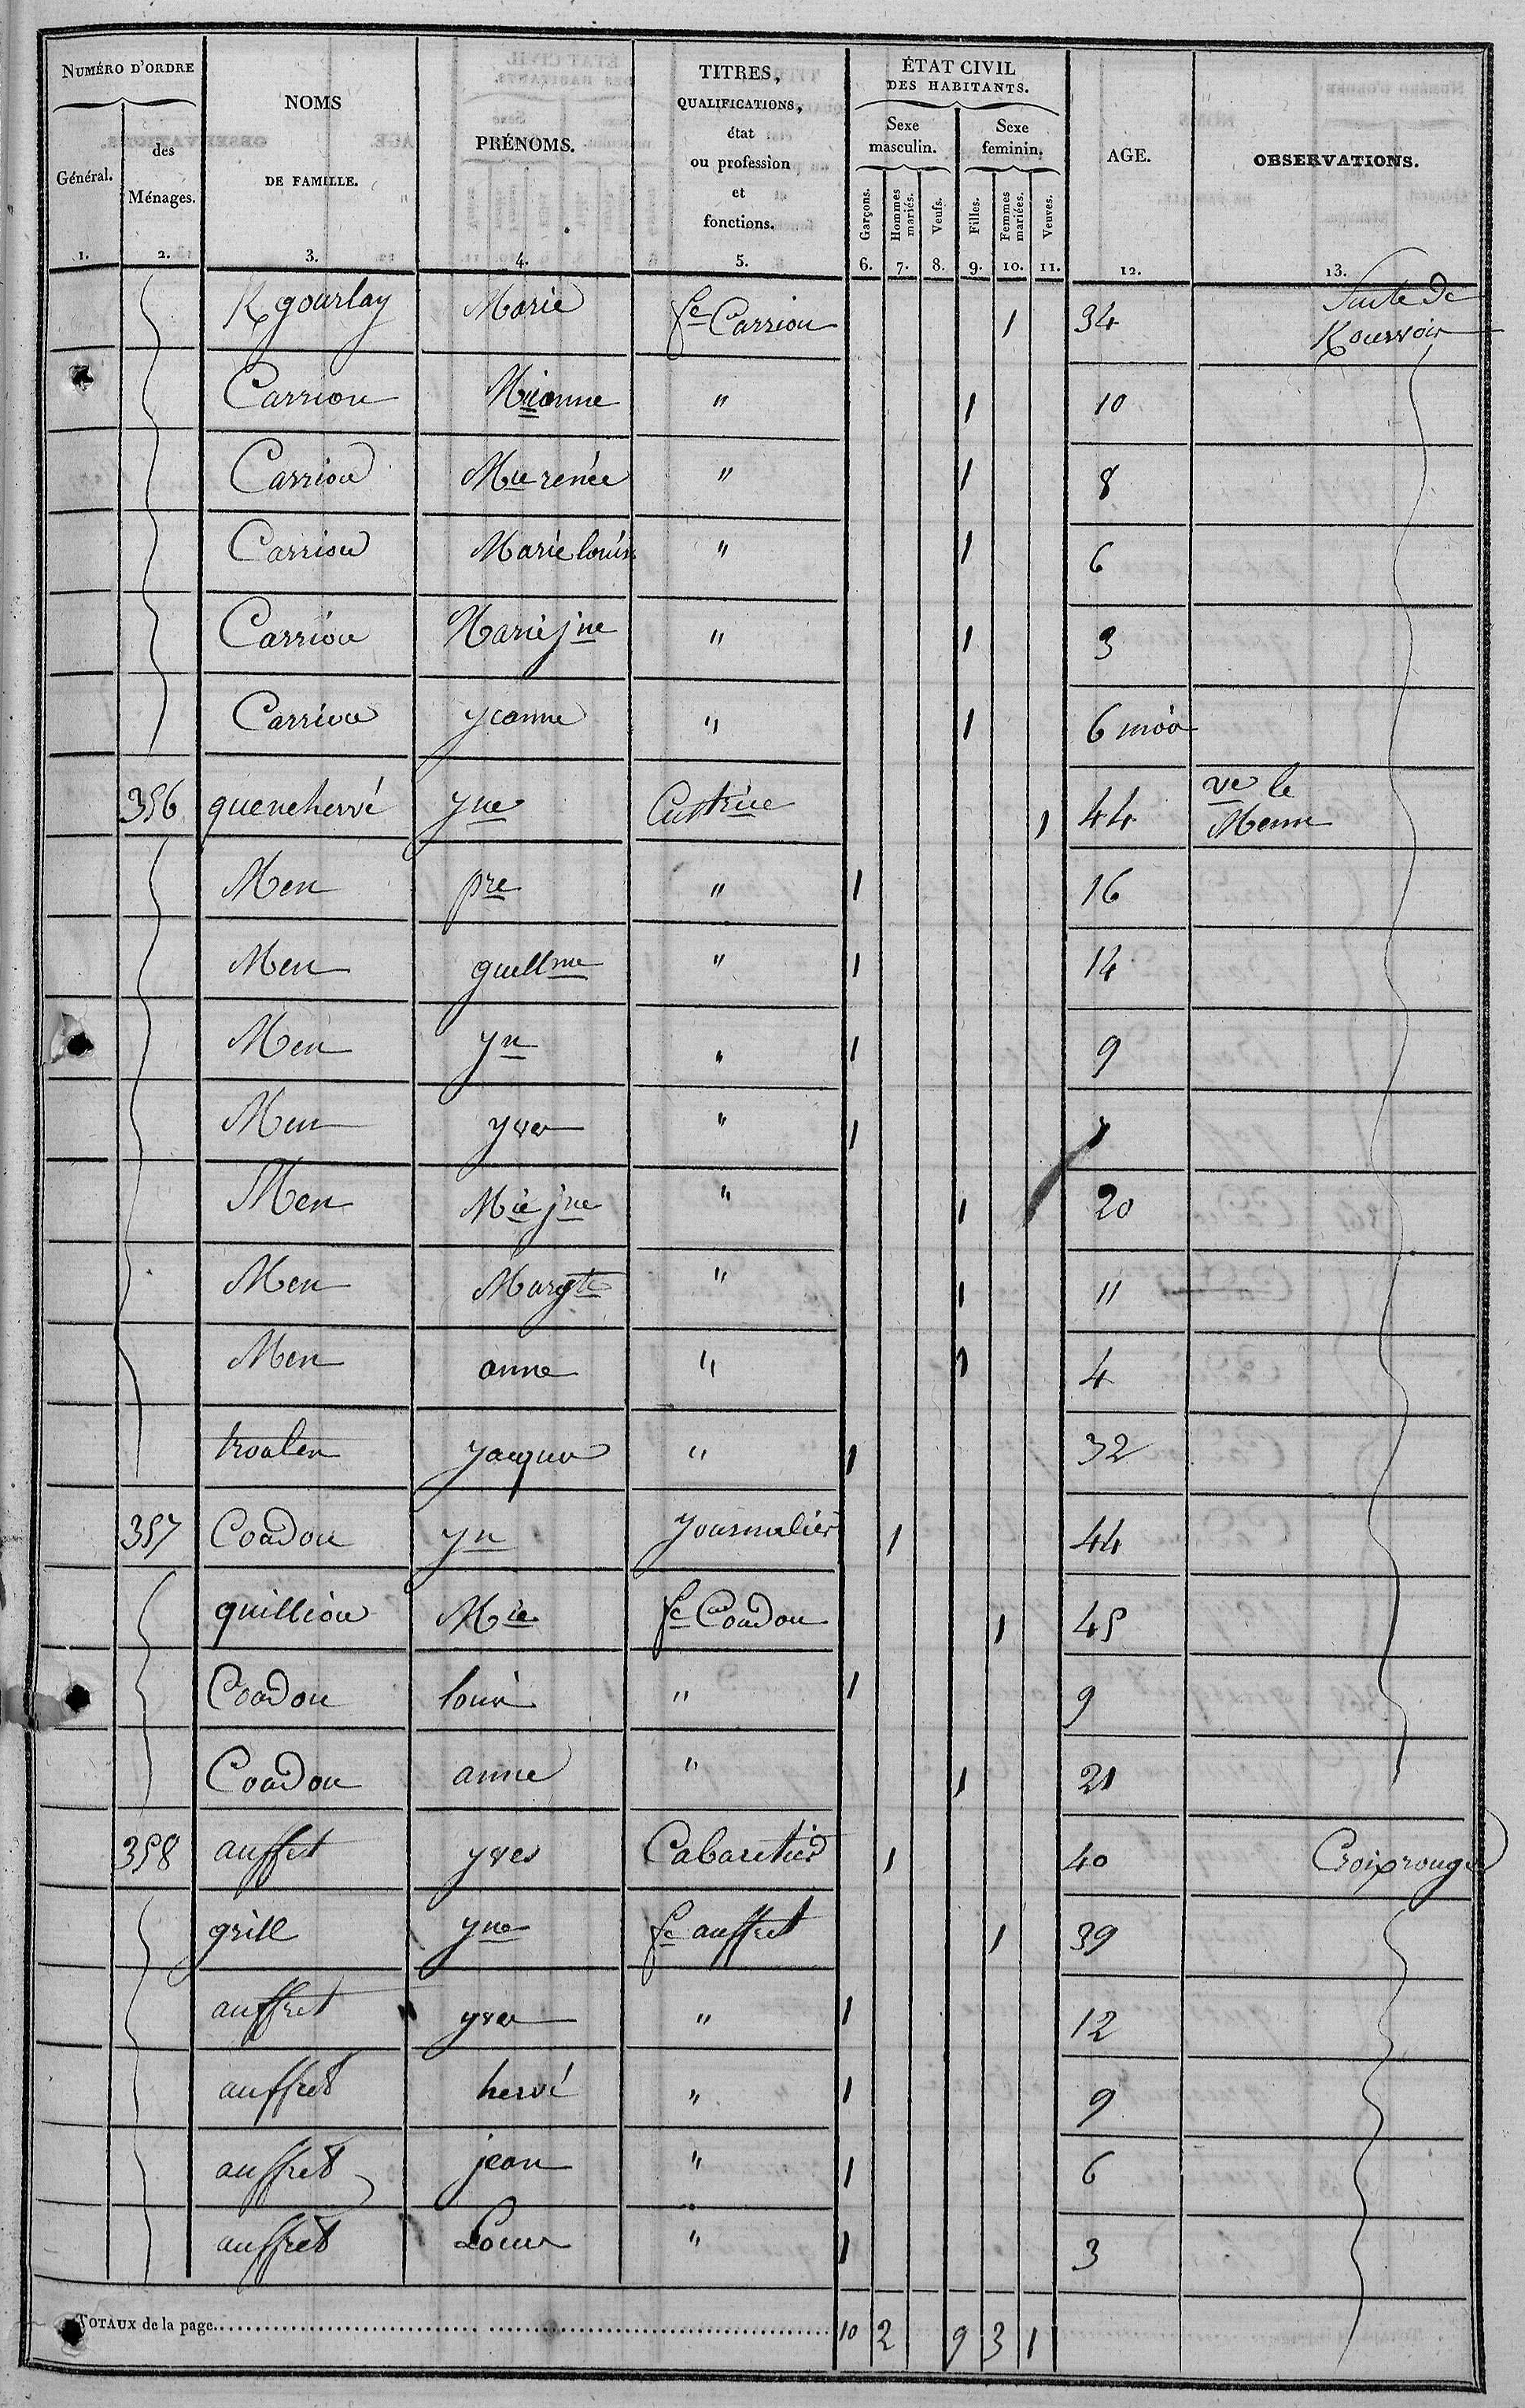 NUMÉRO D'ORDRE
Général.
des Ménages.
NOMS DE FAMILLE.
PRÉNOMS.
TITRES, QUALIFICATIONS, état ou profession et fonctions.
ÉTAT CIVIL DES HABITANTS.
Sexe masculin.
Sexe feminin.
Garçons.
Hommes mariés.
Veufs.
Filles.
Femmes mariées.
Veuves.
AGE.
OBSERVATIONS.
1. 2. 3. 4. 5. 6. 7. 8. 9. 10. 11. 12. 13.
Kgourlay Marie fe Carriou 1 34 Suite de
Carriou Mieanne " 1 10
Carriou Mie renée " 1 8
Carriou Marie louise " 1 6
Carriou Marie jne " 1 3
Carriou yeanne " 1 6 mois
356 quenehervé yne Cultrice 1 44 ve le Menn
Men pre " 1 16
Men guillme " 1 14
Men yn " 1 9
Men yves " 1
Men Mie jne " 1 20
Men Margte " 1 11
Men anne " 1 4
troalen yacques " 1 32
357 Coadou yn yournalier 1 44
quilliou Mie fe Coadou 1 45
Coadou louis " 1 9
Coadou anne " 1 21
358 auffret yves Cabaretier 1 40 Croix rouge
grill yne fe auffret 1 39
auffret yves " 1 12
auffret hervé " 1 9
auffret jean " 1 6
auffret Louis " 1 3
TOTAUX de la page 10 2 9 3 1